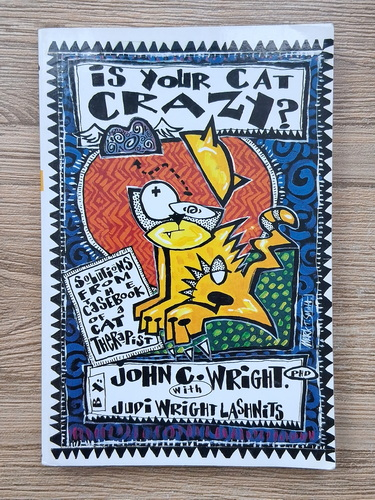 is YOUR CAT
CRAZY?
SOLUTIONS
FROM
THE
CASEBOOK
OF A
CAT
THERAPIST
BY:
JOHN C. WRIGHT. PHD
with
JUDI WRIGHT LASHNITS